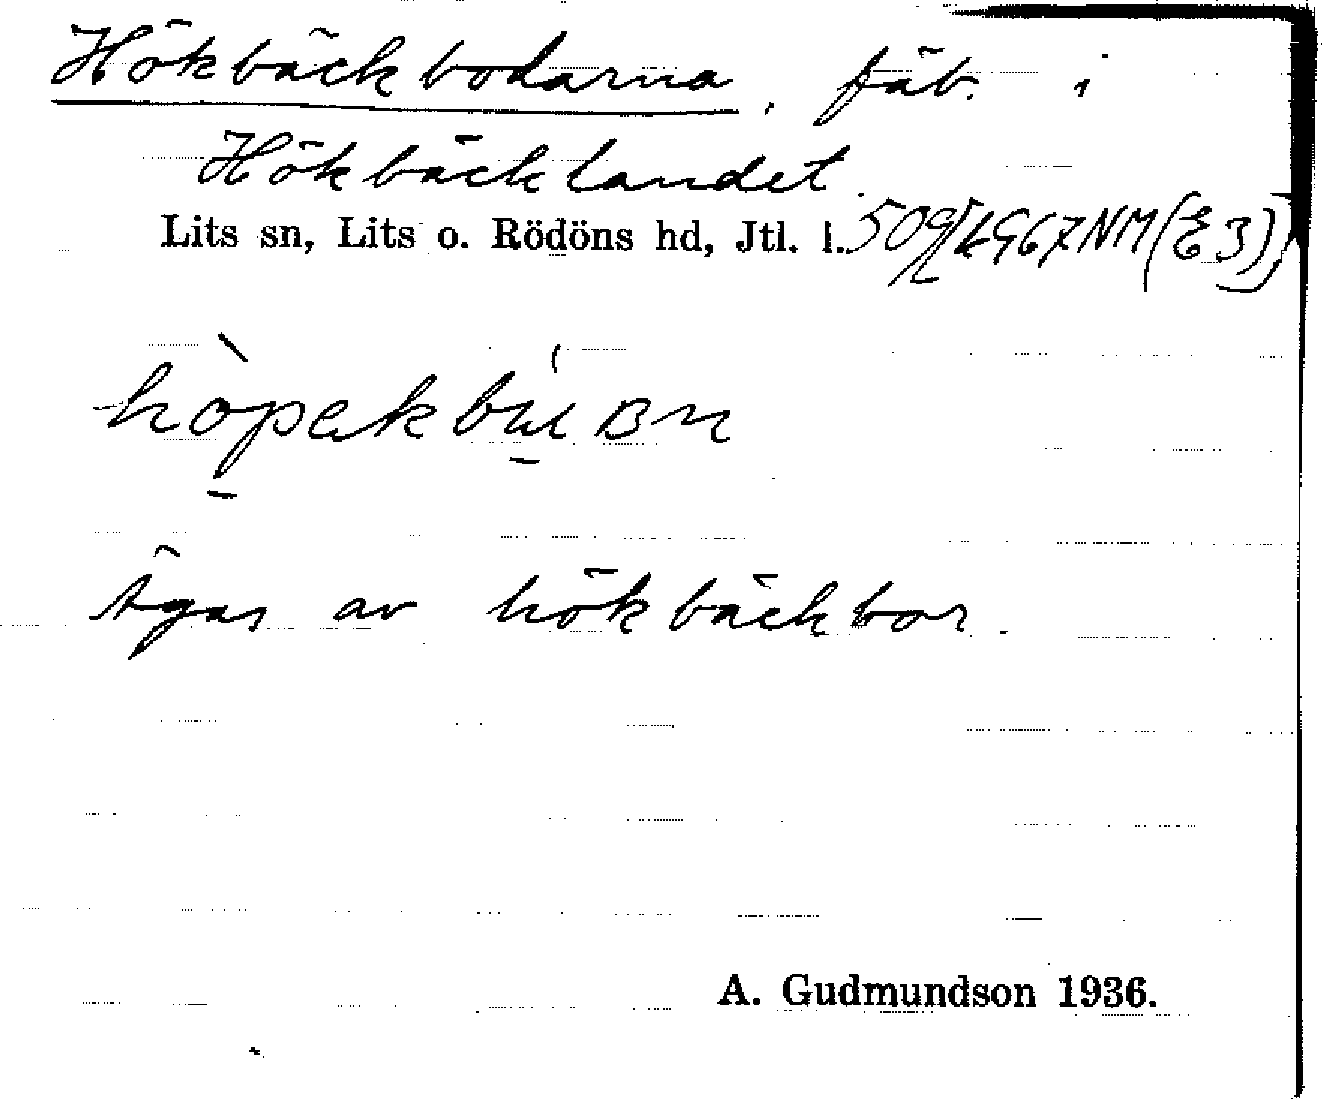 Hökbäckbodarna, fäb. i
Hökbäcklandet
Lits sn, Lits o. Rödöns hd, Jtl. l.
Ägas av hökbäckbor.
A. Gudmundson 1936.